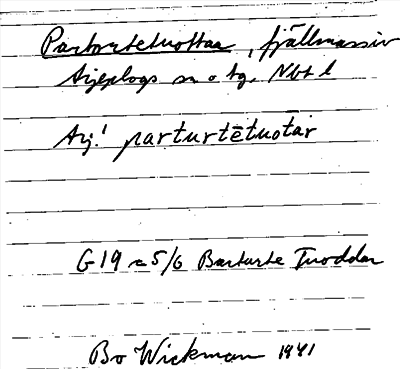 Parturtetuottaa, fjällmassiv
Arjeplogs sn o tg. Nbt l
Arj! parturtētuotar
G19 a 5/6 Barturte Tuoddar
Bo Wickman 1941